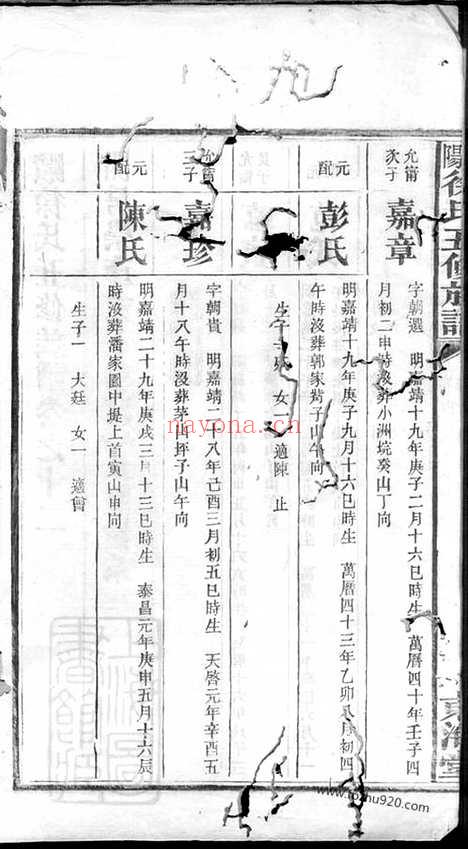 陽徐氏五修族譜
東海堂
允甯
次子
嘉章
字朝選 明嘉靖十九年庚子二月十六巳時生 萬曆四十年壬子四
月初二申時沒葬小洲坑癸山丁向
元配
彭氏
明嘉靖十九年庚子九月十六巳時生 萬曆四十三年乙卯八月初四
午時沒葬郭家 子山午向
生子 女一 適陳 止
三子
嘉珍
字朝貴 明嘉靖二十八年己酉三月初五巳時生 天啓元年辛酉五
月十八午時沒葬茅山坪子山午向
元配
陳氏
明嘉靖二十九年庚戌三月十三巳時生 泰昌元年庚申五月十六辰
時沒葬潘家園中堤上首寅山申向
生子一 大廷 女一 適曾
nayona.cn
www.tozhu920.com